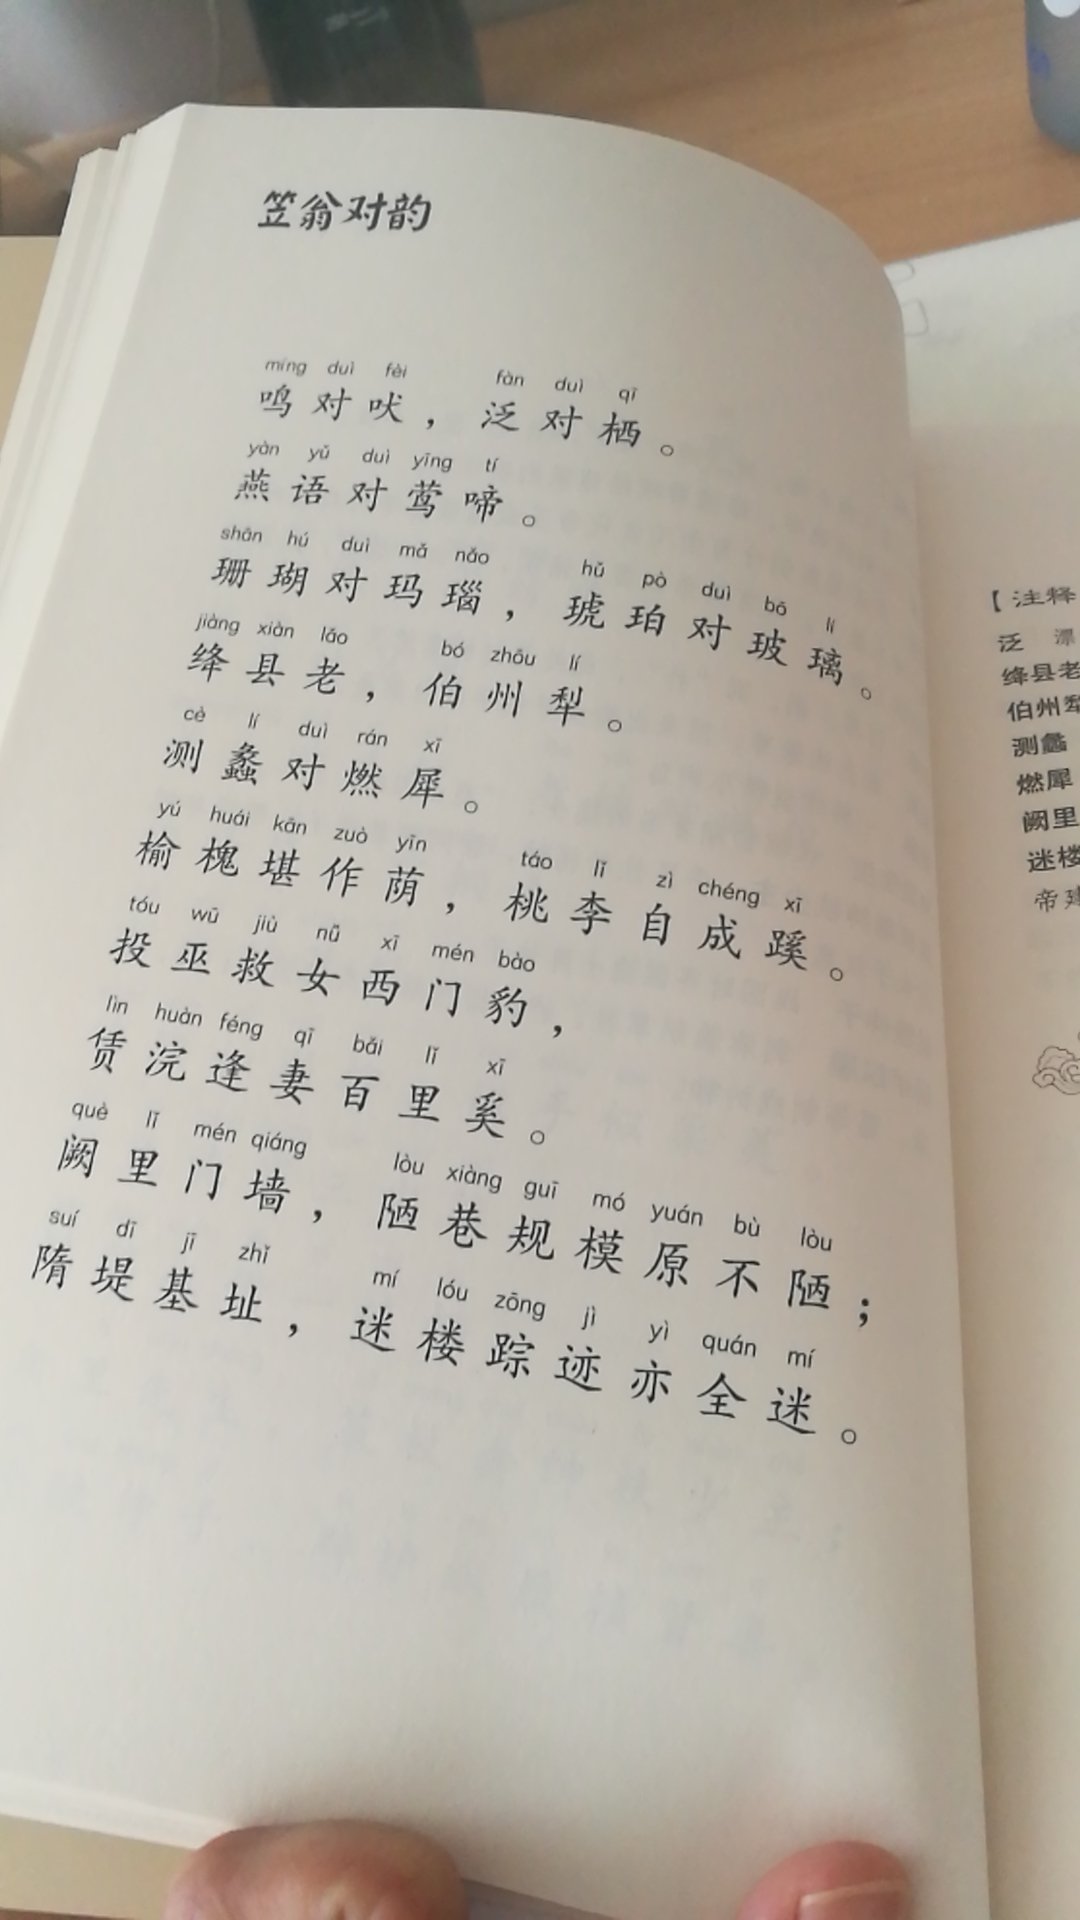 笠翁对韵
míng duì fèi fàn duì qī
鸣对吠，泛对栖。
yàn yǔ duì yīng tí
燕语对莺啼。
shān hú duì mǎ nǎo hǔ pò duì bō lí
珊瑚对玛瑙，琥珀对玻璃。
jiàng xiàn lǎo bó zhōu lí
绛县老，伯州犁。
cè lí duì rán xī
测蠡对燃犀。
yú huái kān zuò yīn táo lǐ zì chéng xī
榆槐堪作荫，桃李自成蹊。
tóu wū jiù nǚ xī mén bào
投巫救女西门豹，
lìn huàn féng qī bǎi lǐ xī
赁浣逢妻百里奚。
què lǐ mén qiáng lòu xiàng guī mó yuán bù lòu
阙里门墙，陋巷规模原不陋；
suí dī jī zhǐ mí lóu zōng jì yì quán mí
隋堤基址，迷楼踪迹亦全迷。
【注释
泛 漂
绛县老
伯州犁
测蠡
燃犀
阙里
迷楼
帝建